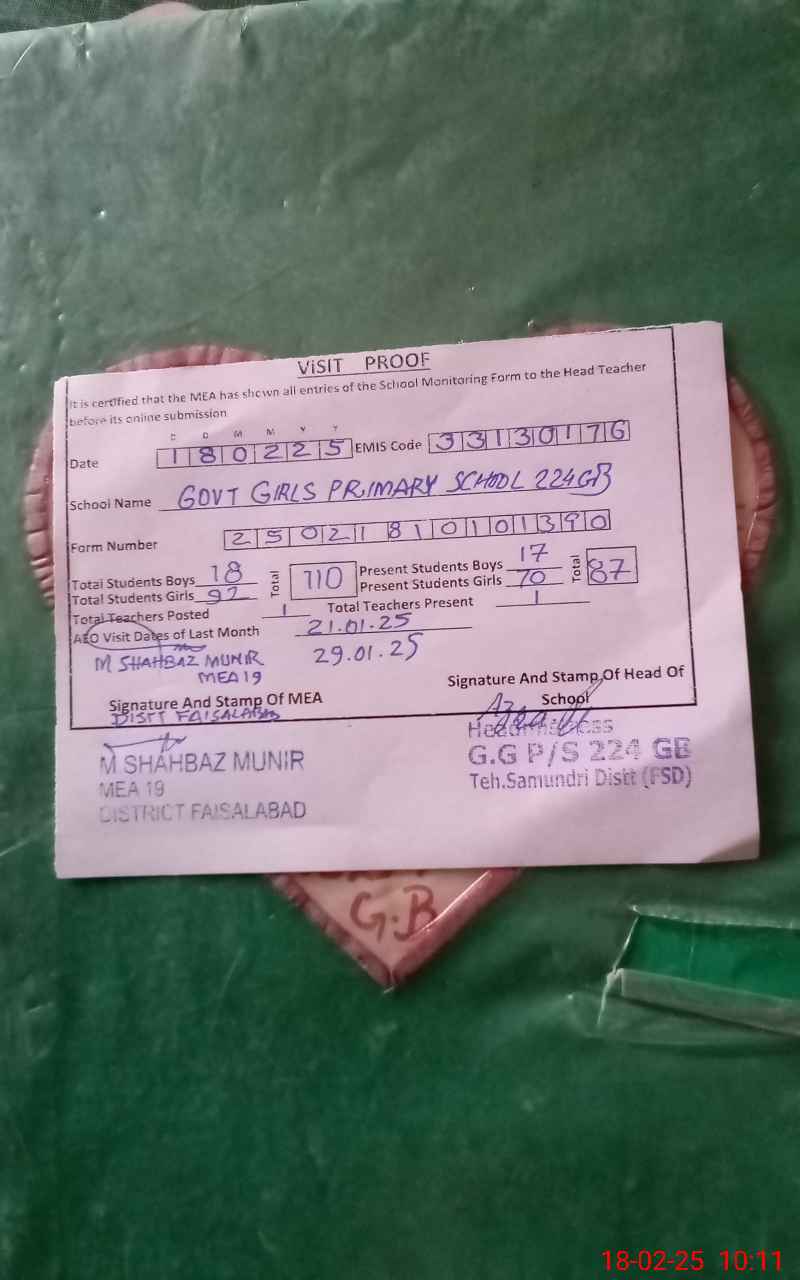 ViSIT PROOF
It is certified that the MEA has shown all entries of the School Monitoring Form to the Head Teacher
before its online submission
D D M M Y Y
Date 180225 EMIS Code 33130176
School Name GOVT GIRLS PRIMARY SCHOOL 224GB
Form Number 25021810101390
Total Students Boys 18 Total 110 Present Students Boys 17 Total 87
Total Students Girls 92 Present Students Girls 70
Total Teachers Posted 1 Total Teachers Present 1
AEO Visit Dates of Last Month 21.01.25
29.01.25
M SHAHBAZ MUNIR
MEA 19
Signature And Stamp Of MEA
DISTT FAISALABAD
Signature And Stamp Of Head Of
School
M SHAHBAZ MUNIR
MEA 19
DISTRICT FAISALABAD
Headmistress
G.G P/S 224 GB
Teh.Samundri Distt (FSD)
G.B
18-02-25 10:11